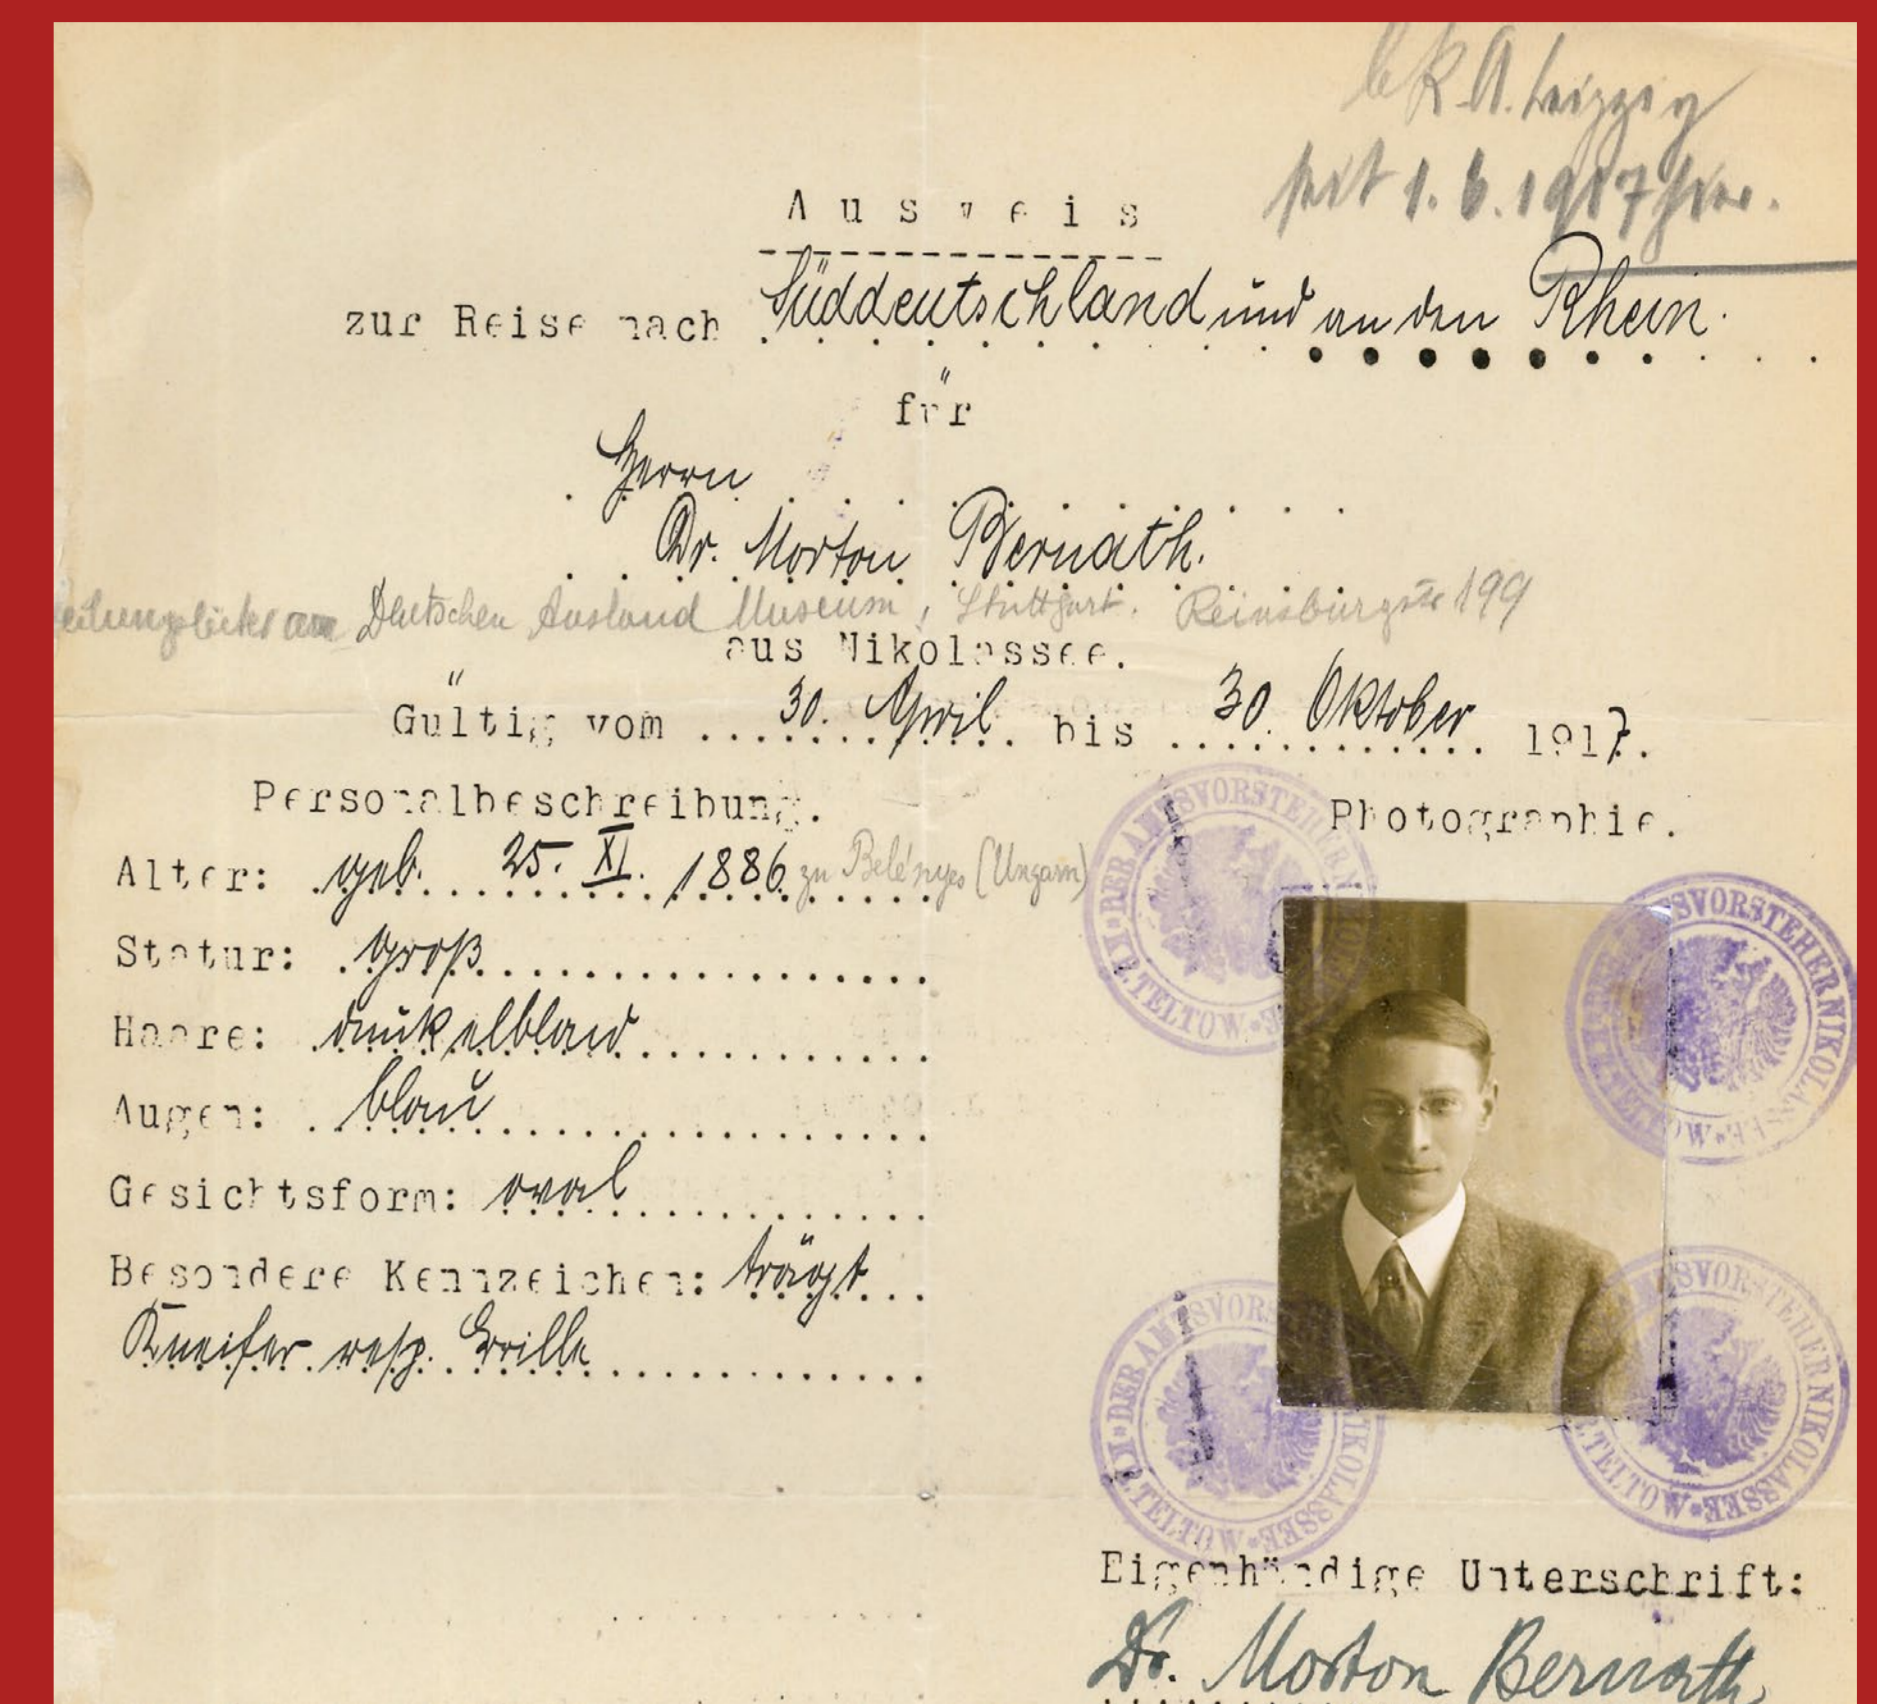 A. Leipzig
seit 1. 6. 1917
Ausweis
zur Reise nach Süddeutschland und an den Rhein.
für
Herrn
Dr. Morton Bernath.
am Deutschen Ausland Museum, Stuttgart. Reinsburgstr 199
aus Nikolassee.
Gültig vom 30. April bis 30. Oktober 1917.
Personalbeschreibung.
Photographie.
Alter: geb. 25. XI. 1886 zu Belényes (Ungarn)
Statur: groß
Haare: dunkelblond
Augen: blau
Gesichtsform: oval
Besondere Kennzeichen: trägt
Kneifer resp. Brille
DER AMTSVORSTEHER NIKOLASSEE * KR. TELTOW *
DER AMTSVORSTEHER NIKOLASSEE * KR. TELTOW *
DER AMTSVORSTEHER NIKOLASSEE * KR. TELTOW *
DER AMTSVORSTEHER NIKOLASSEE * KR. TELTOW *
Eigenhändige Unterschrift:
Dr. Morton Bernath